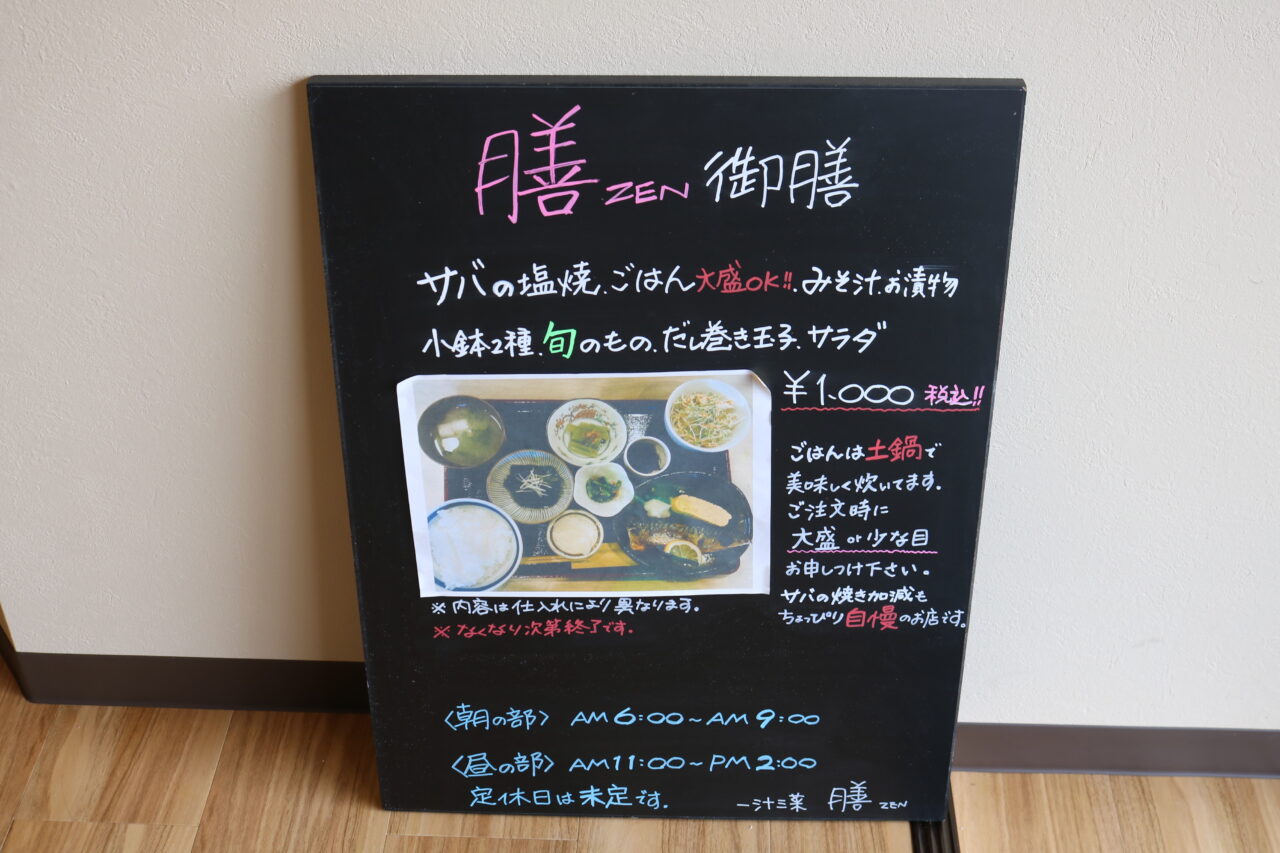 膳 ZEN 御膳
サバの塩焼、ごはん大盛OK!!、みそ汁、お漬物
小鉢2種、旬のもの、だし巻き玉子、サラダ
¥1,000 税込!!
ごはんは土鍋で
美味しく炊いてます。
ご注文時に
大盛 or 少な目
お申しつけ下さい。
サバの焼き加減も
ちょっぴり自慢のお店です。
※内容は仕入れにより異なります。
※なくなり次第終了です。
〈朝の部〉 AM6:00~AM9:00
〈昼の部〉 AM11:00~PM2:00
定休日は未定です。
一汁三菜 膳 ZEN